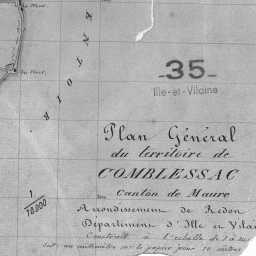 du Mont.
-35-
Ille-et-Vilaine
Plan Général
du territoire de
COMBLESSAC
Canton de Maure
1/10.000
Arrondissement de Redon
Département d'Ille et Vilai
Construit à l'échelle de 1 à
un millimètre sur le papier pour 10 mètres